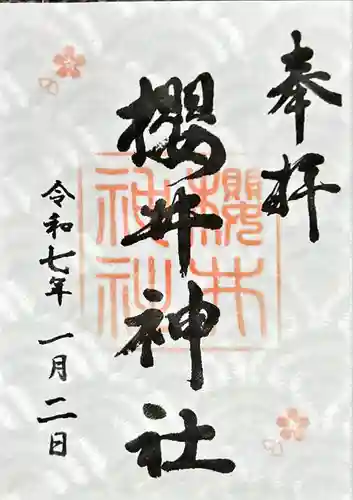 奉拝
櫻井神社
櫻井
神社
令和七年 一月二日